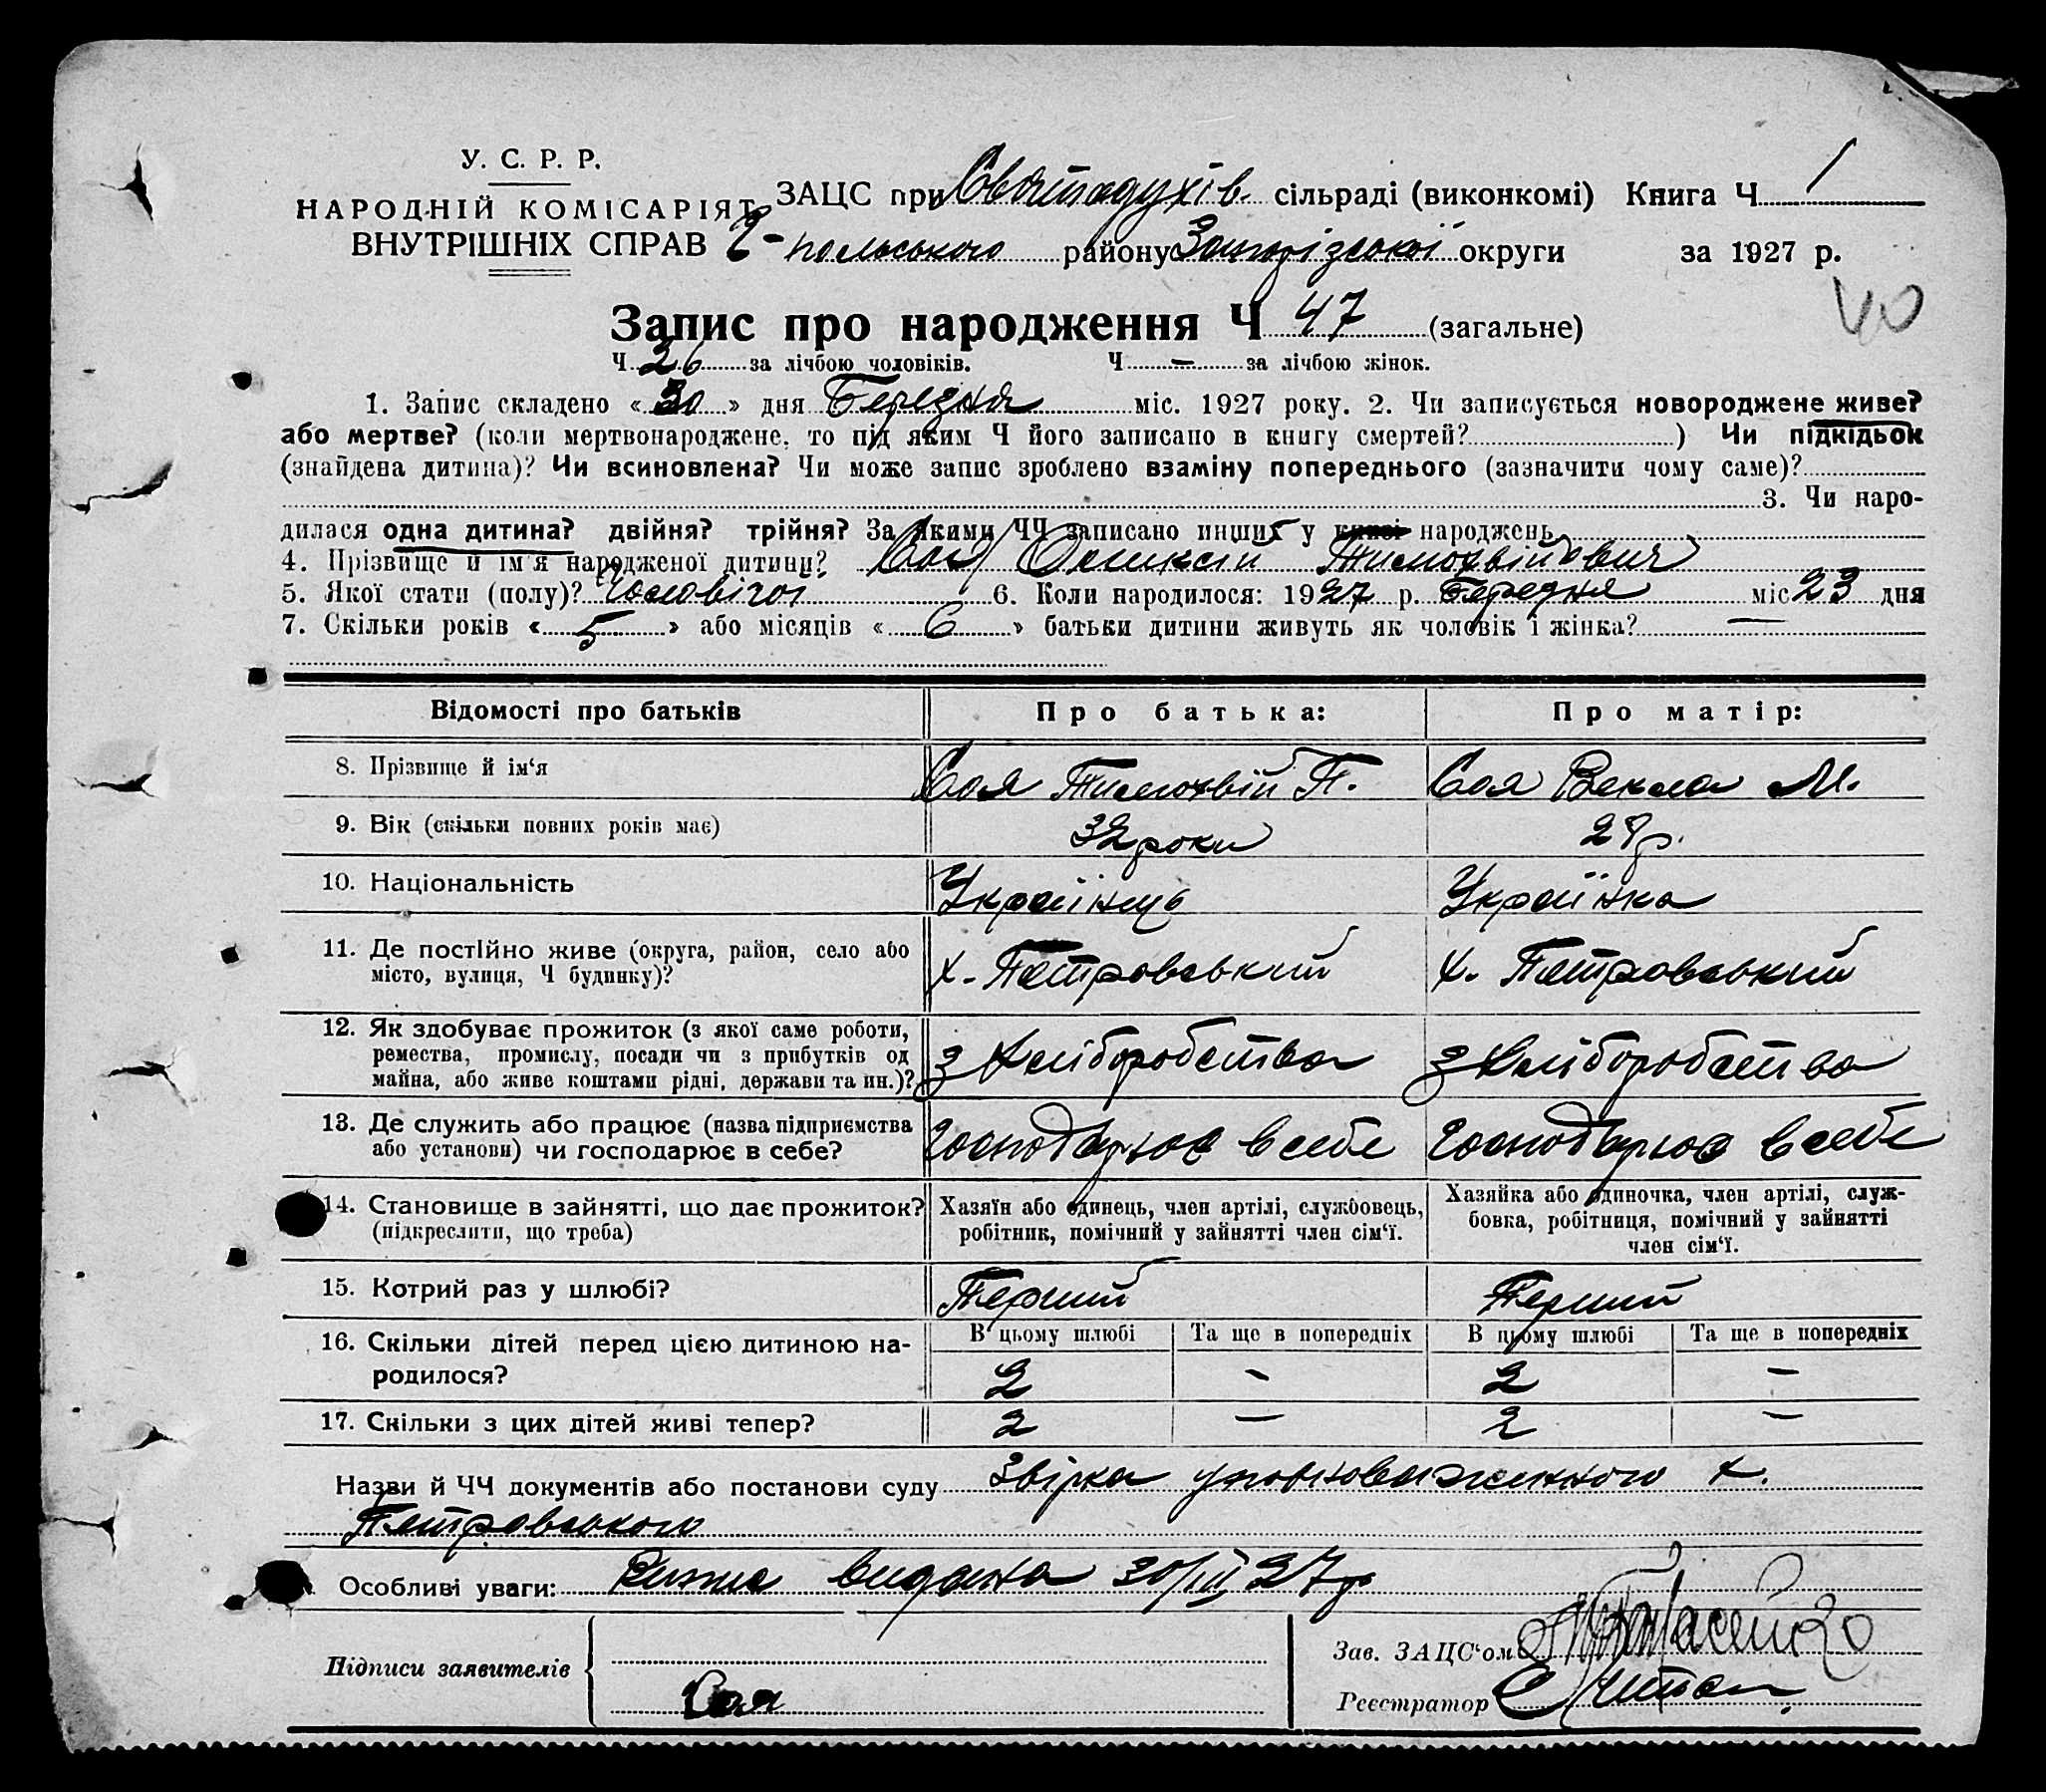 У. С. Р. Р.
НАРОДНІЙ КОМІСАРІЯТ
ВНУТРІШНІХ СПРАВ
ЗАЦС при Святодухів. сільраді (виконкомі) Книга Ч. 1
Г-польського району Запорізської округи за 1927 р.
40
Запис про народження Ч 47 (загальне)
Ч. 26 за лічбою чоловіків. Ч. — за лічбою жінок.
1. Запис складено «30» дня Березня міс. 1927 року. 2. Чи записується новороджене живе?
або мертве? (коли мертвонароджене, то під яким Ч його записано в книгу смертей? ) Чи підкідьок
(знайдена дитина)? Чи всиновлена? Чи може запис зроблено взаміну попереднього (зазначити чому саме)?
3. Чи наро-
дилася одна дитина? двійня? трійня? За якими ЧЧ записано инших у книзі народжень
4. Прізвище й ім'я народженої дитини? Соя Олексій Тимохвійович
5. Якої стати (полу)? Чоловічої 6. Коли народилося: 1927 р. Березня міс 23 дня
7. Скільки років « 5 » або місяців « 6 » батьки дитини живуть як чоловік і жінка? —
Відомості про батьків Про батька: Про матір:
8. Прізвище й ім'я Соя Тимохвій П. Соя Векла М.
9. Вік (скільки повних років має) 32 роки 28 р.
10. Національність Українць Українка
11. Де постійно живе (округа, район, село або
місто, вулиця, Ч будинку)? х. Петровський х. Петровський
12. Як здобуває прожиток (з якої саме роботи,
ремества, промислу, посади чи з прибутків од
майна, або живе коштами рідні, держави та ин.)? З хліборобства З хліборобства
13. Де служить або працює (назва підприємства
або установи) чи господарює в себе? Господарює в себе Господарює в себе
14. Становище в зайнятті, що дає прожиток?
(підкреслити, що треба)
Хазяїн або одинець, член артілі, службовець,
робітник, помічний у зайнятті член сім'ї.
Хазяйка або одиночка, член артілі, служ-
бовка, робітниця, помічний у зайнятті
член сім'ї.
15. Котрий раз у шлюбі? Перший Перший
16. Скільки дітей перед цією дитиною на-
родилося?
В цьому шлюбі Та ще в попередніх В цьому шлюбі Та ще в попередніх
2 - 2 -
17. Скільки з цих дітей живі тепер? 2 — 2 —
Назви й ЧЧ документів або постанови суду Звірка уповноваженного х.
Петровського
Особливі уваги: видана 30/III 27 р
Підписи заявителів
Соя
Зав. ЗАЦС'ом
Реєстратор